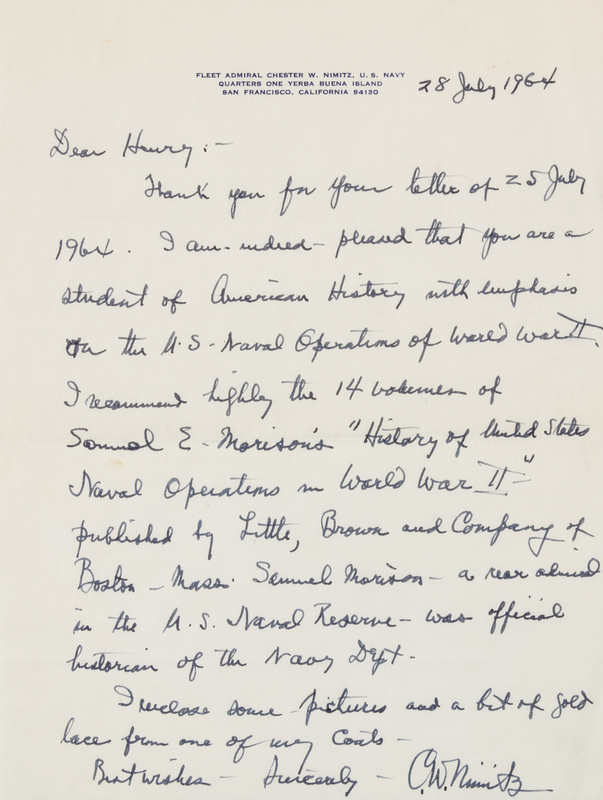 FLEET ADMIRAL CHESTER W. NIMITZ, U. S. NAVY
QUARTERS ONE YERBA BUENA ISLAND
SAN FRANCISCO, CALIFORNIA 94130
28 July 1964
Dear Henry:-
Thank you for your letter of 25 July
1964. I am - indeed - pleased that you are a
student of American History with emphasis
on the U.S. Naval Operations of World War II.
I recommend highly the 14 volumes of
Samuel E. Morison's "History of United States
Naval Operations in World War II" -
published by Little, Brown and Company of
Boston - Mass. Samuel Morison - a rear admiral
in the U.S. Naval Reserve - was official
historian of the Navy Dept.
I enclose some pictures and a bit of gold
lace from one of my Coats -
Best wishes - Sincerely - C.W. Nimitz